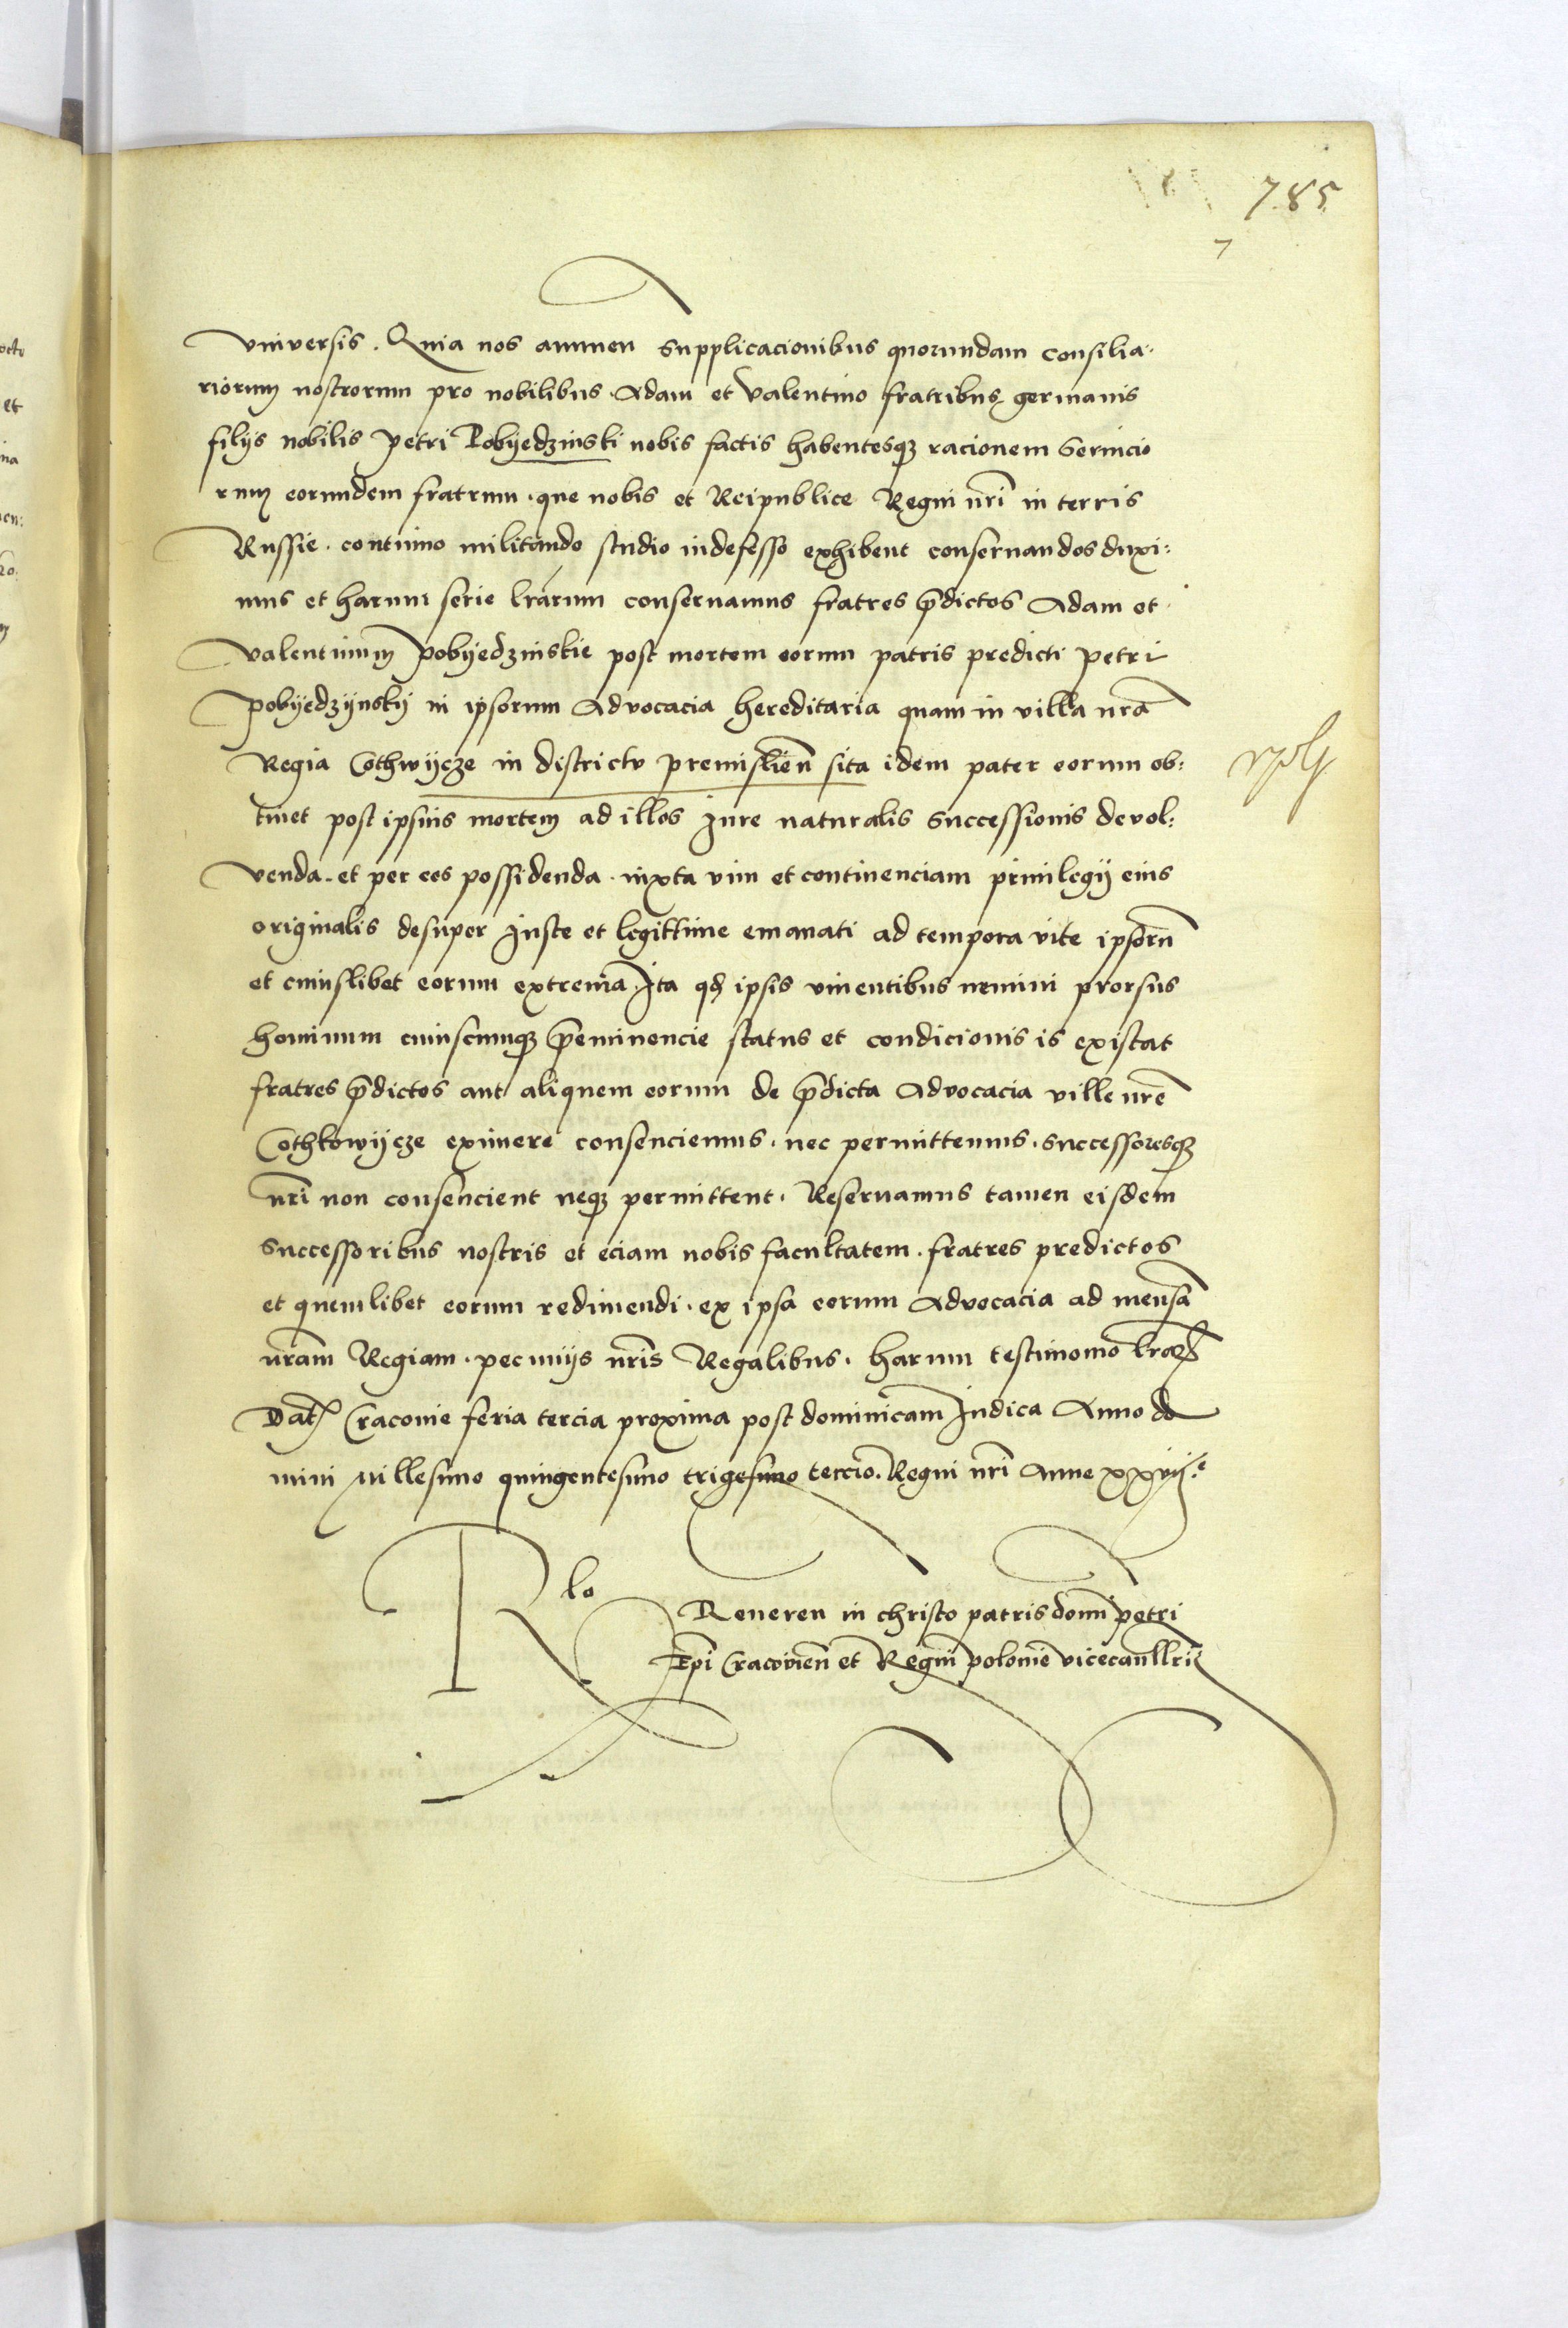 785
7
vniversis. Quia nos annuen supplicacionibus quorundam consilia-
riorum nostrorum pro nobilibus Adam et Valentino fratribus germanis
filijs nobilis Petri Pobyedzinski nobis factis habentesqz racionem Servicio
rum eorundem fratrum. que nobis et Reipublice Regni nri in terris
Russie. continuo militando studio indefesso exhibent conservandos duxi:
mus et harum serie lrarum conservamus fratres pdictos Adam et
Valentinum Pobyedzinskie post mortem eorum patris predicti Petri
Pobyedzynskij in ipsorum Advocacia hereditaria quam in villa nra
Regia Cothwijcze in districtu premislien sita idem pater eorum ob:
tinet post ipsius mortem ad illos Jure naturalis Successionis devol:
venda. et per eos possidenda. iuxta vim et continenciam privilegij eius
originalis desuper Juste et legittime emanati ad tempora vite ipsoru
et cuiuslibet eorum extrema. Ita qd ipsis viventibus nemini prorsus
hominum cuiuscunqz peminencie status et condicionis is existat
fratres pdictos aut aliquem eorum de pdicta Advocacia ville nre
Cothkowijcze eximere consenciemus. nec permittemus. successoresqz
nri non consencient neqz permittent. Reservamus tamen eisdem
Successoribus nostris et eciam nobis facultatem. fratres predictos
et quemlibet eorum redimendi. ex ipsa eorum Advocacia ad mensa
nram Regiam. pecunijs nris Regalibus. harum testimonio lrarz
Dat Cracovie feria tercia proxima post dominicam Judica Anno do
mini Millesimo quingentesimo trigesimo tercio. Regni nri Anno xxvij.
Rlo
Reveren in christo patris domi Petri
Epi Cracovien et Regni polonie vicecancllrij